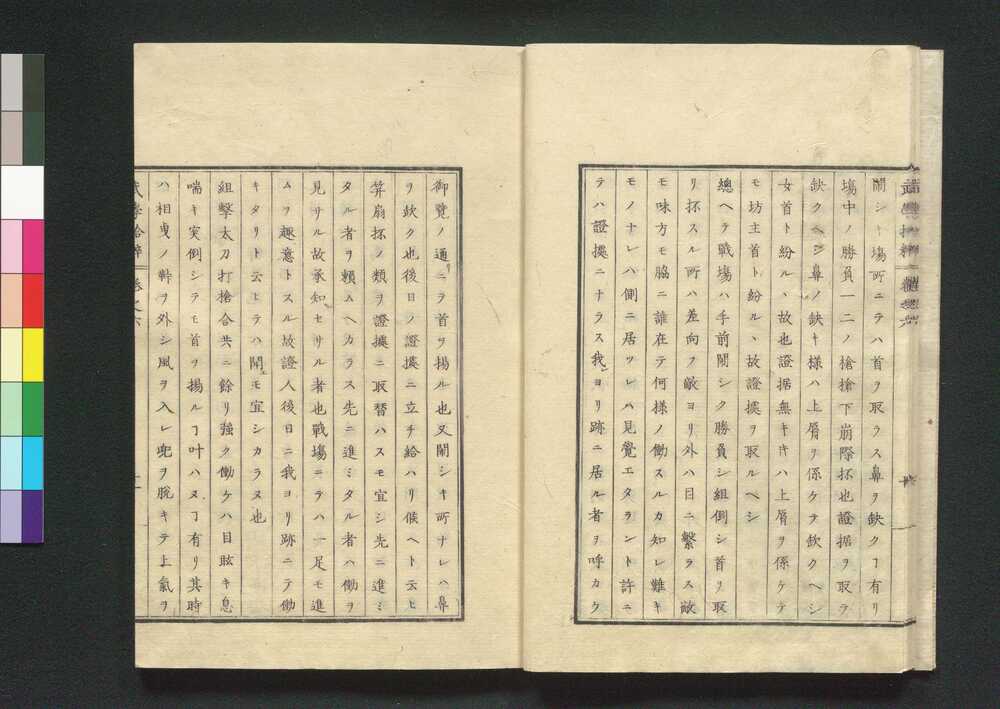 鬧シキ塲所ニテハ首ヲ取ラス鼻ヲ缺クヿ有リ
塲中ノ勝負一二ノ槍槍下崩際抔也證据ヲ取ラ
缺クヘシ鼻ノ缺キ様ハ上屑ヲ係ケテ欽クヘシ
女首ト紛ルヽ故也證据無キキハ上屑ヲ係ケテ
モ坊主首ト紛ルヽ故證據ヲ取ルヘシ
總ヘテ戰塲ハ手前鬧シク勝負シ組倒シ首ヲ取
リ抔スル所ハ差向フ敵ヨリ外ハ目ニ繫ラス敵
モ味方モ脇ニ誰在テ何様ノ働スルカ知レ難キ
モノナレハ側ニ居ツレハ見覺エタラント許ニ
テハ證據ニナラス我ヨリ跡ニ居ル者ヲ呼カケ
御覽ノ通リニテ首ヲ揚ル也又鬧シキ所ナレハ鼻
ヲ欽ク也後日ノ證據ニ立チ給ハリ候ヘト云ヒ
筭扇抔ノ類ヲ證據ニ取替ハスモ宜シ先ニ進ミ
タル者ヲ頼ムヘカラス先ニ進ミタル者ハ働ヲ
見サル故承知セサル者也戰塲ニテハ一足モ進
ムヲ趣意トスル故證人後日ニ我ヨリ跡ニテ働
キタリト云ヒテハ聞エモ宜シカラヌ也
組擊太刀打槍合共ニ餘リ強ク働ケハ目眩キ息
喘キ実倒シテモ首ヲ揚ルヿ叶ハヌヿ有リ其時
ハ相曳ノ幹ヲ外シ風ヲ入レ兜ヲ脫キテ上氣ヲ